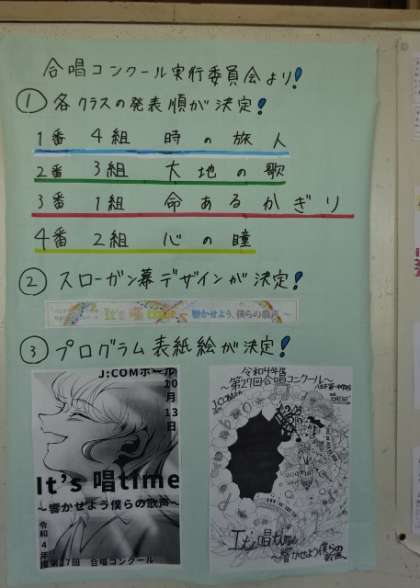 合唱コンクール実行委員会より!
① 各クラスの発表順が決定!
1番 4組 時の旅人
2番 3組 大地の歌
3番 1組 命あるかぎり
4番 2組 心の瞳
② スローガン幕デザインが決定!
It's 唱time 〜響かせよう、僕らの歌声〜
③ プログラム表紙絵が決定!
J:COMホール
10月13日
It's 唱time
〜響かせよう僕らの歌声〜
令和4年度第27回 合唱コンクール
令和4年度
〜第27回合唱コンクール〜
It's 唱time
〜響かせよう僕らの歌声